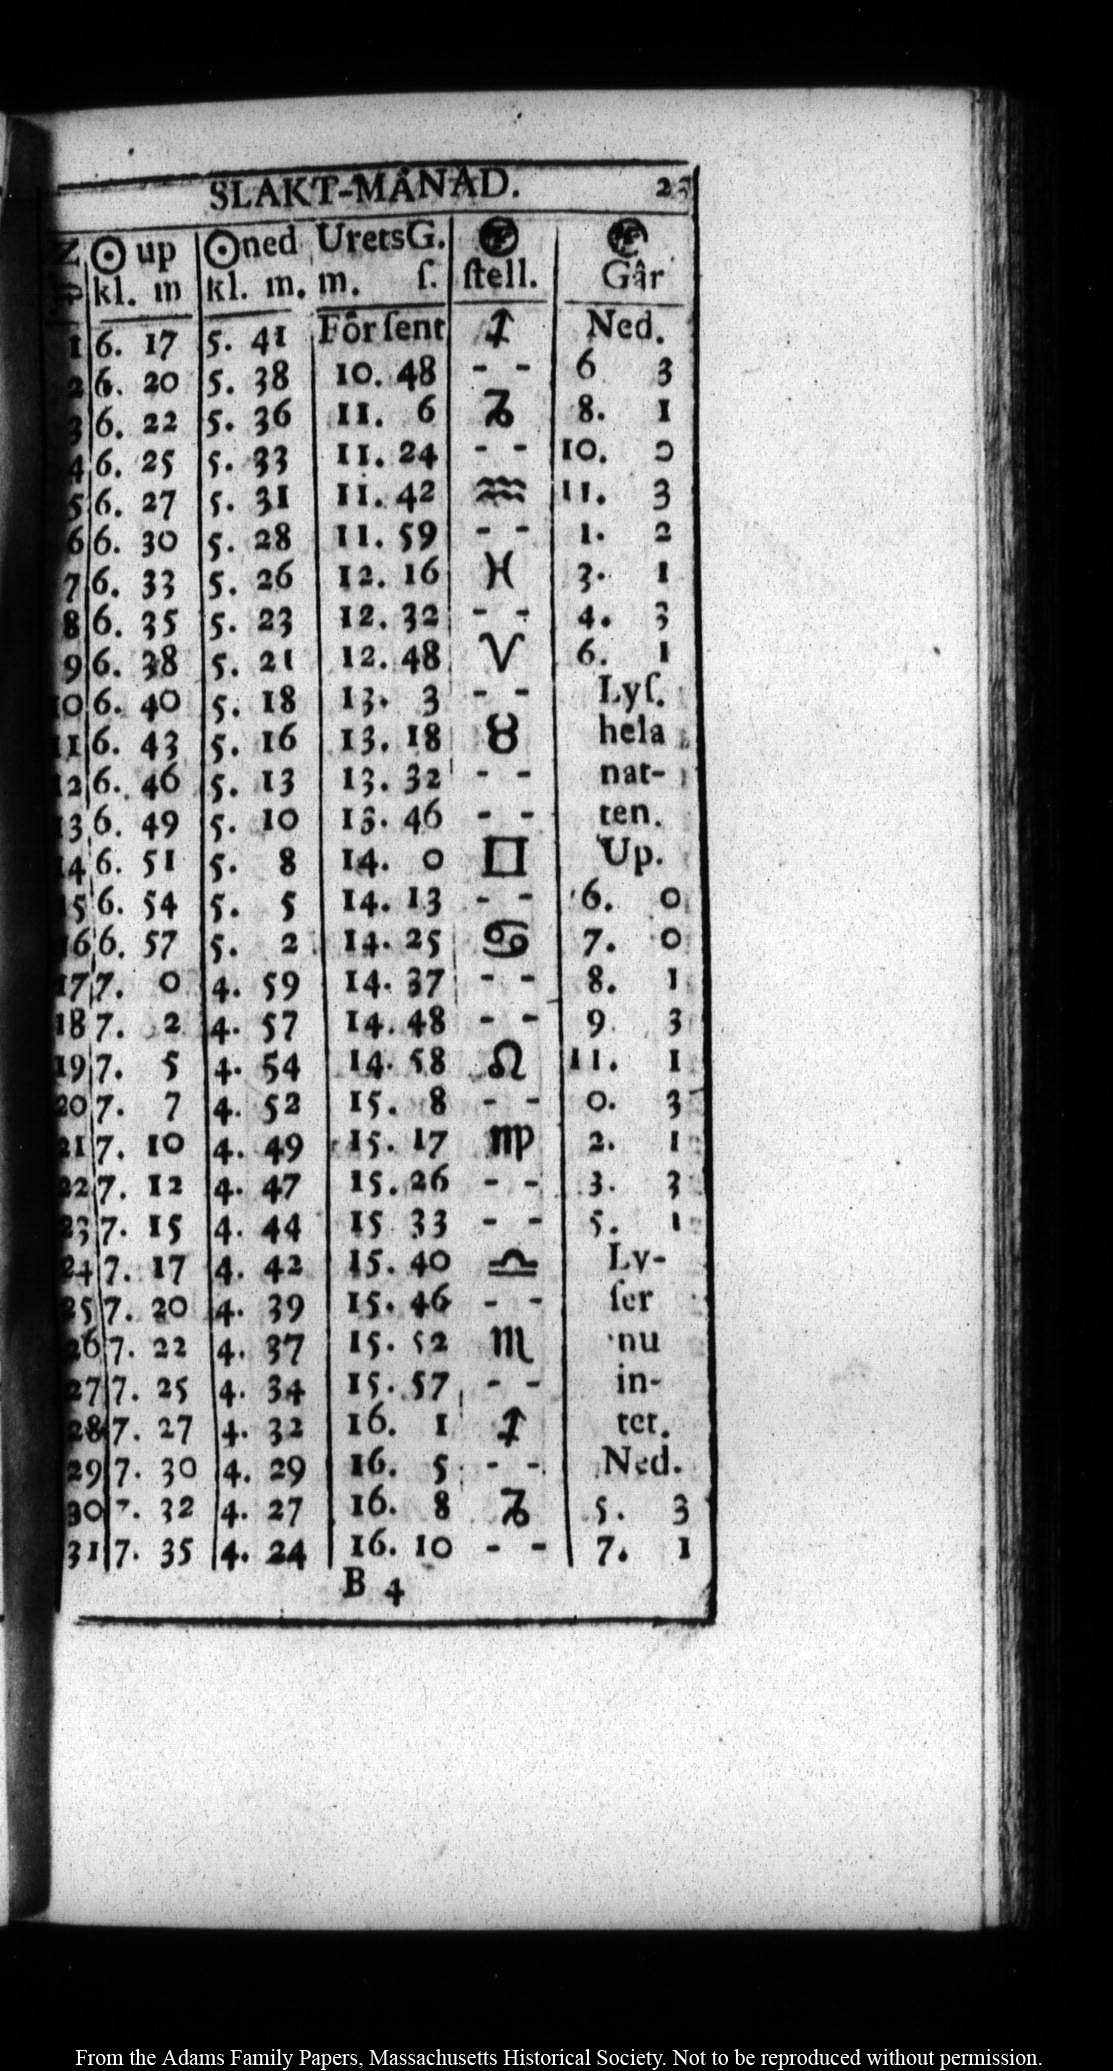 SLAKT-MÅNAD. 23
☉ up ☉ned UretsG. ſtell. Går
kl. m kl. m. m. ſ.
1 6. 17 5. 41 Förſent ♐ Ned.
2 6. 20 5. 38 10. 48 - - 6 3
3 6. 22 5. 36 11. 6 ♑ 8. 1
4 6. 25 5. 33 11. 24 - - 10. 0
5 6. 27 5. 31 11. 42 ♒ 11. 3
6 6. 30 5. 28 11. 59 - - 1. 2
7 6. 33 5. 26 12. 16 ♓ 3. 1
8 6. 35 5. 23 12. 32 - - 4. 3
9 6. 38 5. 21 12. 48 ♈ 6. 1
10 6. 40 5. 18 13. 3 - - Lyſ.
11 6. 43 5. 16 13. 18 ♉ hela
12 6. 46 5. 13 13. 32 - - nat-
13 6. 49 5. 10 13. 46 - - ten.
14 6. 51 5. 8 14. 0 ♊ Up.
15 6. 54 5. 5 14. 13 - - 6. 0
16 6. 57 5. 2 14. 25 ♋ 7. 0
17 7. 0 4. 59 14. 37 - - 8. 1
18 7. 2 4. 57 14. 48 - - 9. 3
19 7. 5 4. 54 14. 58 ♌ 11. 1
20 7. 7 4. 52 15. 8 - - 0. 3
21 7. 10 4. 49 15. 17 ♍ 2. 1
22 7. 12 4. 47 15. 26 - - 3. 3
23 7. 15 4. 44 15 33 - - 5. 1
24 7. 17 4. 42 15. 40 ♎ Ly-
25 7. 20 4. 39 15. 46 - - ſer
26 7. 22 4. 37 15. 52 ♏ nu
27 7. 25 4. 34 15. 57 - - in-
28 7. 27 4. 32 16. 1 ♐ tet.
29 7. 30 4. 29 16. 5 - - Ned.
30 7. 32 4. 27 16. 8 ♑ 5. 3
31 7. 35 4. 24 16. 10 - - 7. 1
B 4
From the Adams Family Papers, Massachusetts Historical Society. Not to be reproduced without permission.